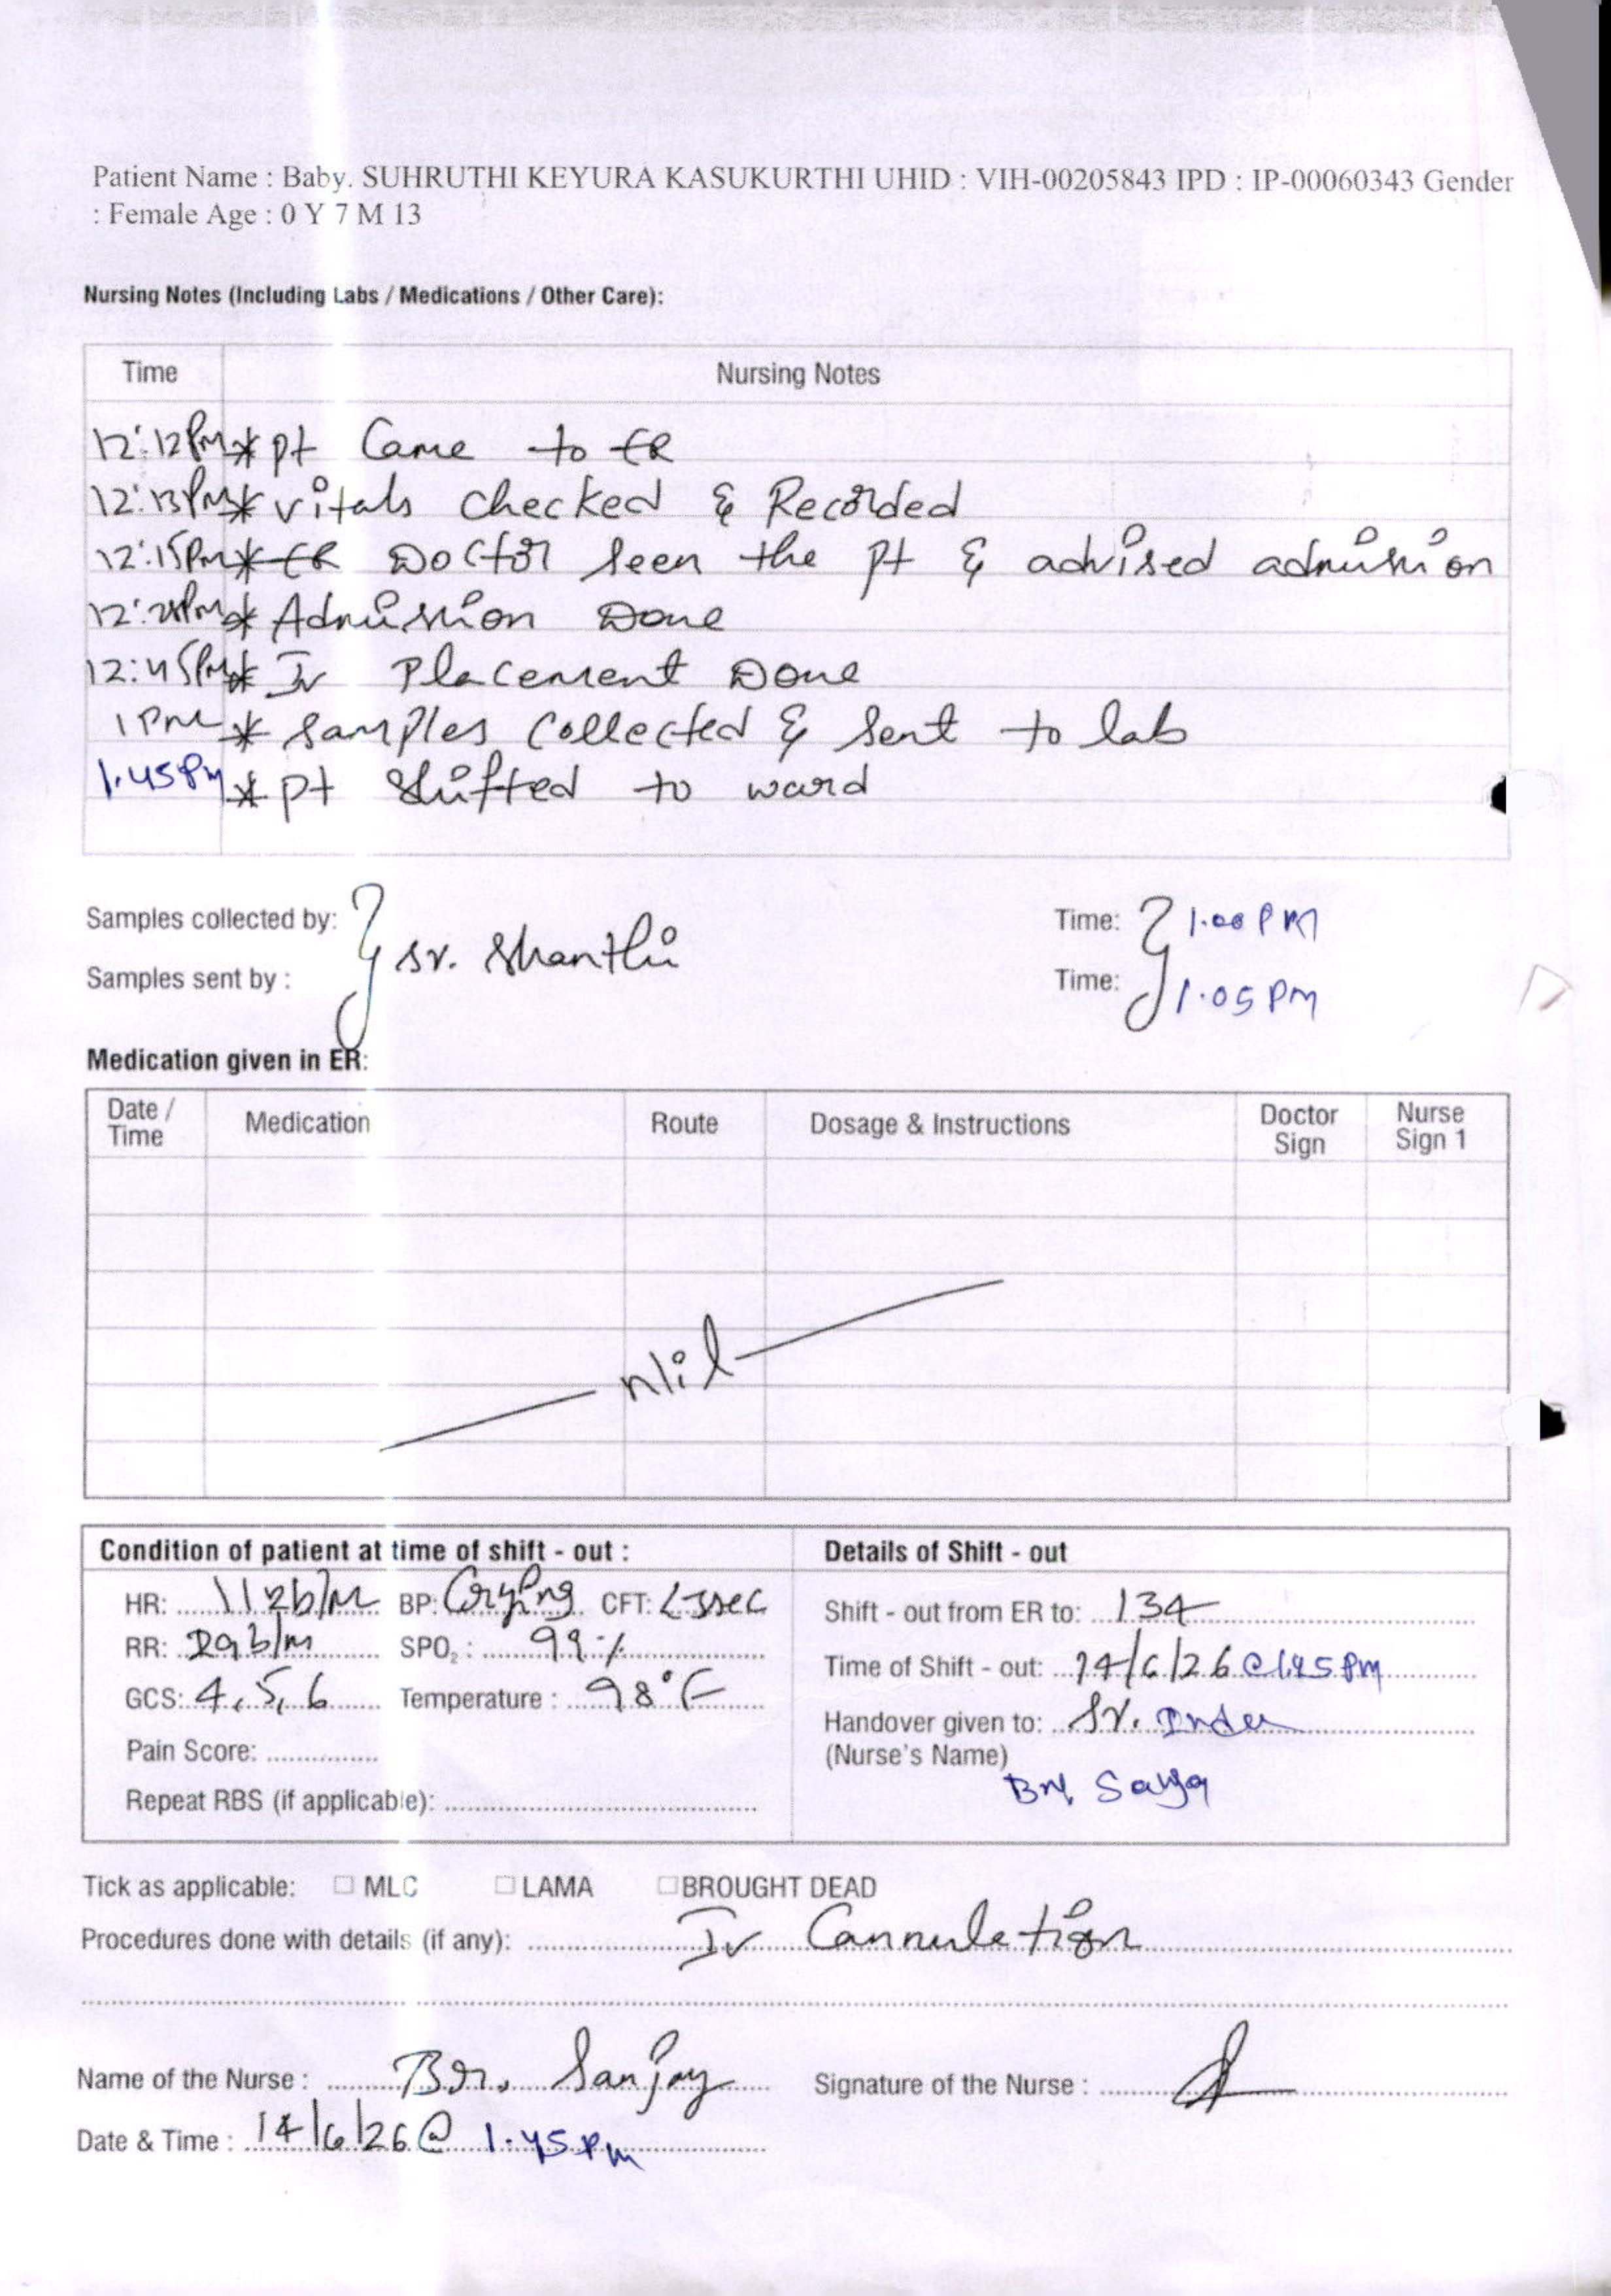 Patient Name : Baby. SUHRUTHI KEYURA KASUKURTHI UHID : VIH-00205843 IPD : IP-00060343 Gender
: Female Age : 0 Y 7 M 13
Nursing Notes (Including Labs / Medications / Other Care):
Time Nursing Notes
12:12PM * pt Came to ER
12:13PM * vitals checked & Recorded
12:15PM * ER Doctor seen the pt & advised admission
* Admission Done
12:45PM * Iv Placement Done
1PM * samples collected & sent to lab
1.45PM * pt shifted to ward
Samples collected by: Time: 1.00PM
sr. Shanthi
Samples sent by : Time: 1.05PM
Medication given in ER:
Date / Time Medication Route Dosage & Instructions Doctor Sign Nurse Sign 1
Nil
Condition of patient at time of shift - out : Details of Shift - out
HR: 112b/m BP: Crying CFT: <3sec Shift - out from ER to: 134
RR: 29b/m SPO2 : 99% Time of Shift - out: 14/6/26 @ 1.45 PM
GCS: 4, 5, 6 Temperature : 98°F Handover given to: Sr.
Pain Score: (Nurse's Name)
Br.
Repeat RBS (if applicable):
Tick as applicable: MLC LAMA BROUGHT DEAD
Procedures done with details (if any): Iv Cannulation
Name of the Nurse : Br. Sanjay Signature of the Nurse :
Date & Time : 14/6/26 @ 1.45 PM